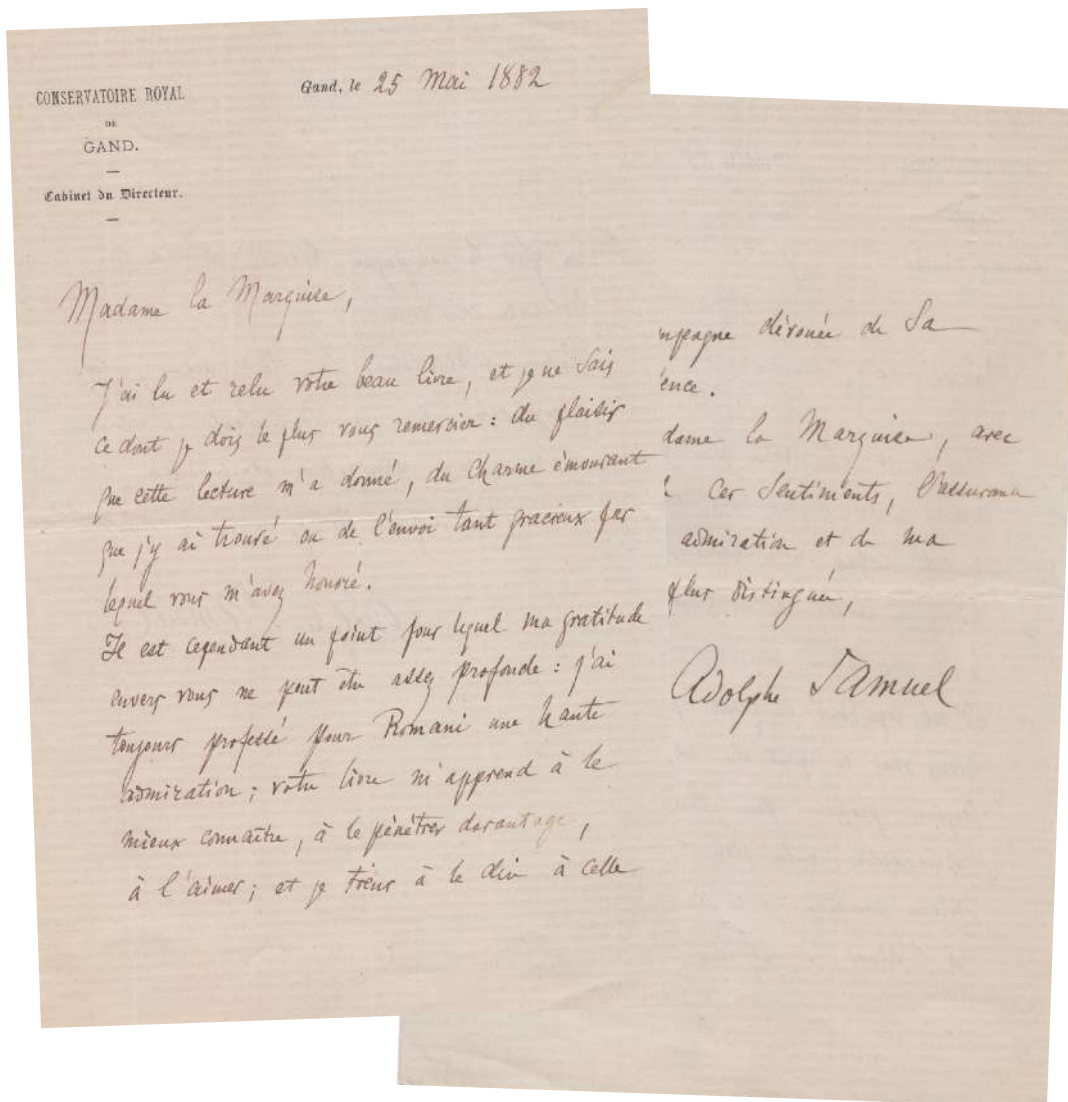 CONSERVATOIRE ROYAL
DE
GAND.
Cabinet du Directeur.
Gand, le 25 Mai 1882
Madame la Marquise,
J'ai lu et relu votre beau livre, et je ne sais
ce dont je dois le plus vous remercier : du plaisir
que cette lecture m'a donné, du charme émouvant
que j'y ai trouvé ou de l'envoi tant gracieux par
lequel vous m'avez honoré.
Il est cependant un point pour lequel ma gratitude
envers vous ne peut être assez profonde : j'ai
toujours professé pour Romani une haute
admiration ; votre livre m'apprend à le
mieux connaître, à le pénétrer davantage,
à l'aimer ; et je tiens à le dire à celle
mpagne dévouée de Sa
ence.
dame la Marquise, avec
ces sentiments, l'assurance
admiration et de ma
plus distinguée,
Adolphe Samuel